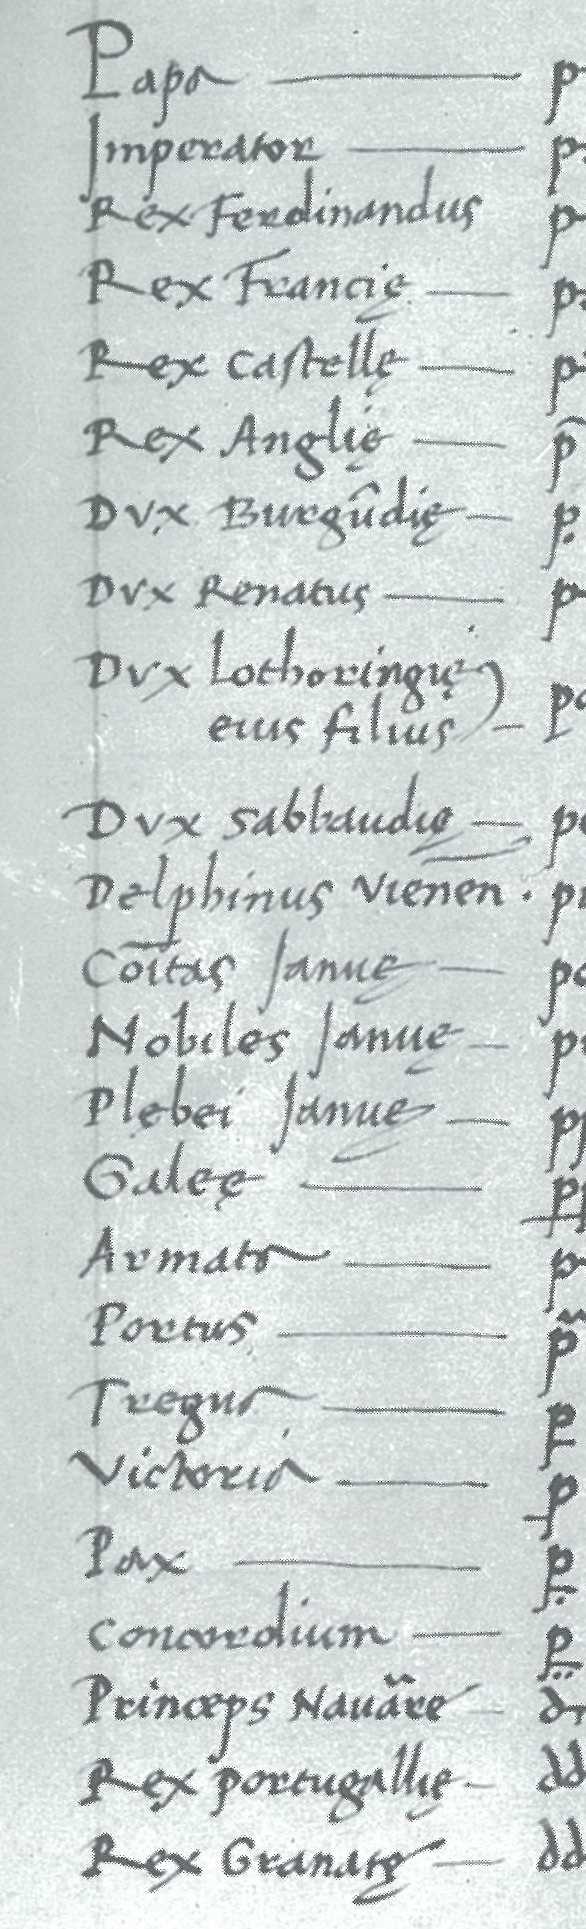 Papa — p
Imperator — p
Rex Ferdinandus p
Rex Francię — p
Rex Castellę — p
Rex Anglię — p̄
Dvx Burgūdię — p
Dvx Renatus — p
Dvx lothoringię
eius filius — po
Dvx Sabbaudię — po
Delphinus Vienen̄. p
Cōitas Januę — po
Nobiles Januę — p
Plębei Januę — pp
Galeę — p
Armata — p
Portus — p
Tregua — p
Victoria — p
Pax — p
Concordium — p
Princeps Nauare — d
Rex portugallię — dd
Rex Granatę — dd